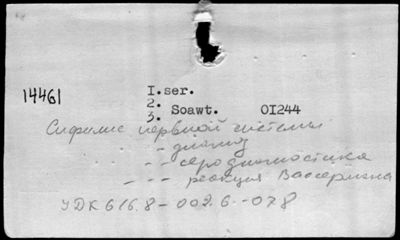 14461
I.ser.
2.
3. Soawt. OI244
Сифилис нервной системы
- диагноз
- - серодиагностика
- - - реакция Вассермана
УДК 616.8-002.6-078